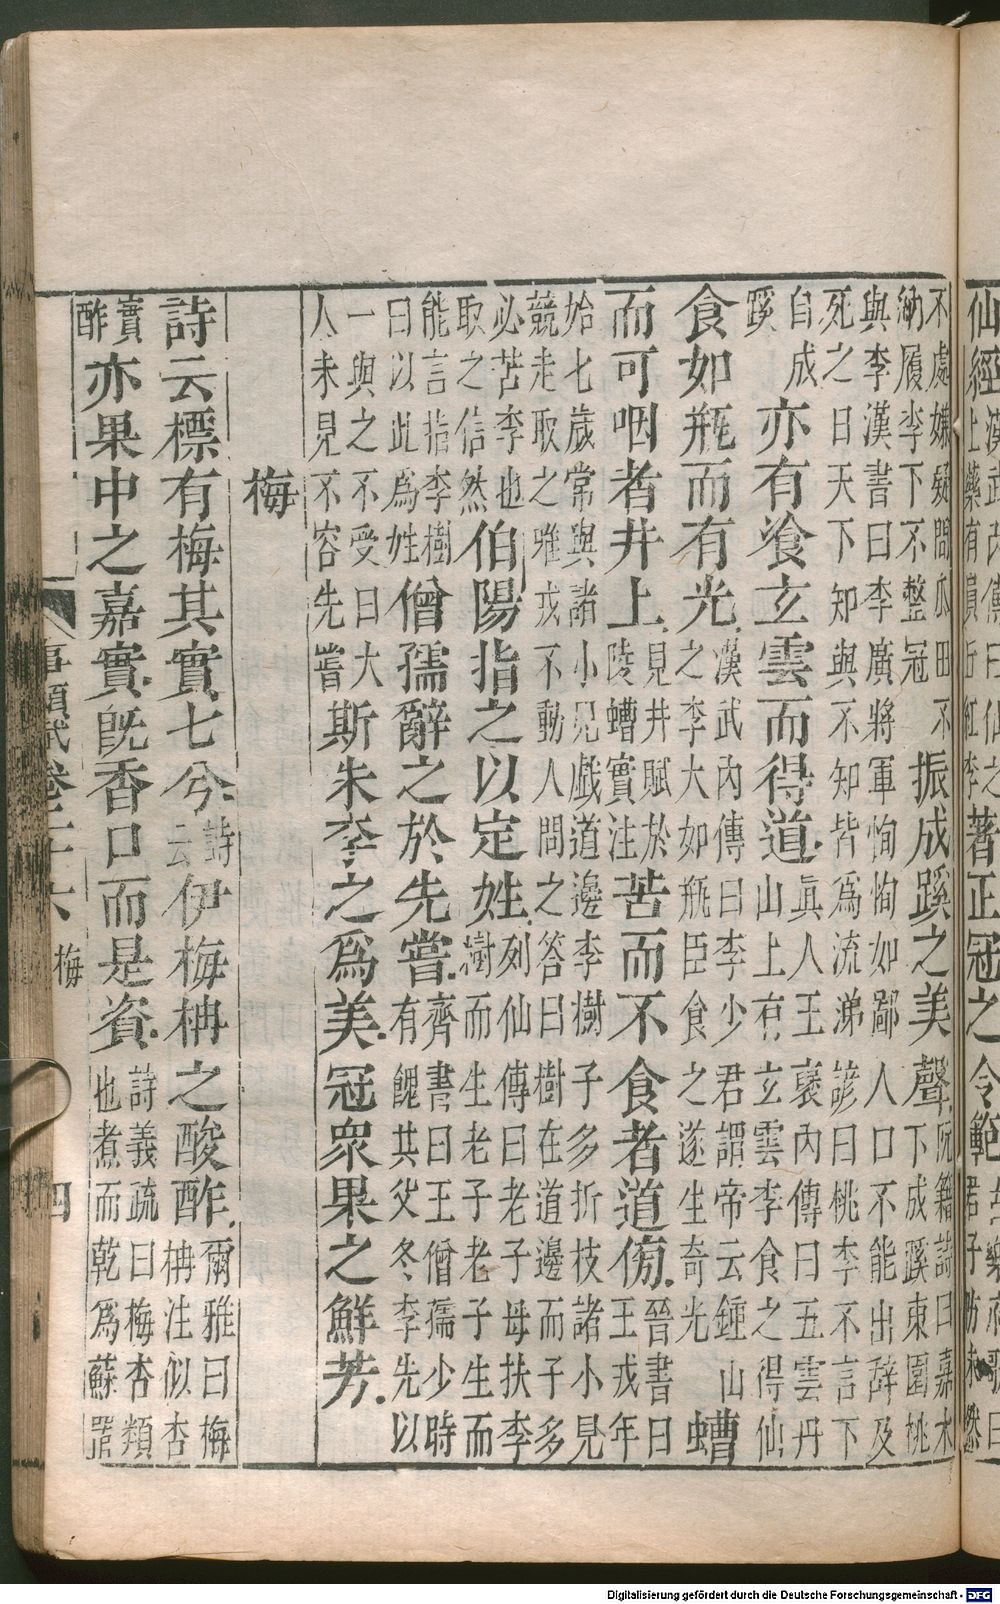 仙經
漢武內傳曰仙之
上藥有員丘紅李
著正冠之令範
古樂府歌曰
君子防未然
不處嫌疑間瓜田不
納履李下不整冠
振成蹊之美聲
阮籍詩曰嘉木
下成蹊東園桃
與李漢書曰李廣將軍恂恂如鄙人口不能出辭及
死之日天下知與不知皆爲流涕諺曰桃李不言下
自成
蹊
亦有飡玄雲而得道
眞人王褒內傳曰五雲丹
山上有玄雲李食之得仙
食如瓶而有光
漢武內傳曰李少君謂帝云鍾山
之李大如瓶臣食之遂生奇光
螬
而可咽者井上
見井賦於
陵螬實注
苦而不食者道傍
晉書曰
王戎年
始七歲常與諸小兒戲道邊李樹子多折枝諸小兒
競走取之唯戎不動人問之答曰樹在道邊而子多
必苦李也
取之信然
伯陽指之以定姓
列仙傳曰老子母扶李
樹而生老子老子生而
能言指李樹
曰以此爲姓
僧孺辭之於先嘗
齊書曰王僧孺少時
有餽其父冬李先以
一與之不受曰大
人未見不容先嘗
斯朱李之爲美冠衆果之鮮芳
梅
詩云標有梅其實七兮
詩
云
伊梅柟之酸酢
爾雅曰梅
柟注似杏
實
酢
亦果中之嘉實旣香口而是資
詩義疏曰梅杏類
也煮而乾爲蘇置
事類賦卷二十六 梅 四
Digitalisierung gefördert durch die Deutsche Forschungsgemeinschaft - DFG